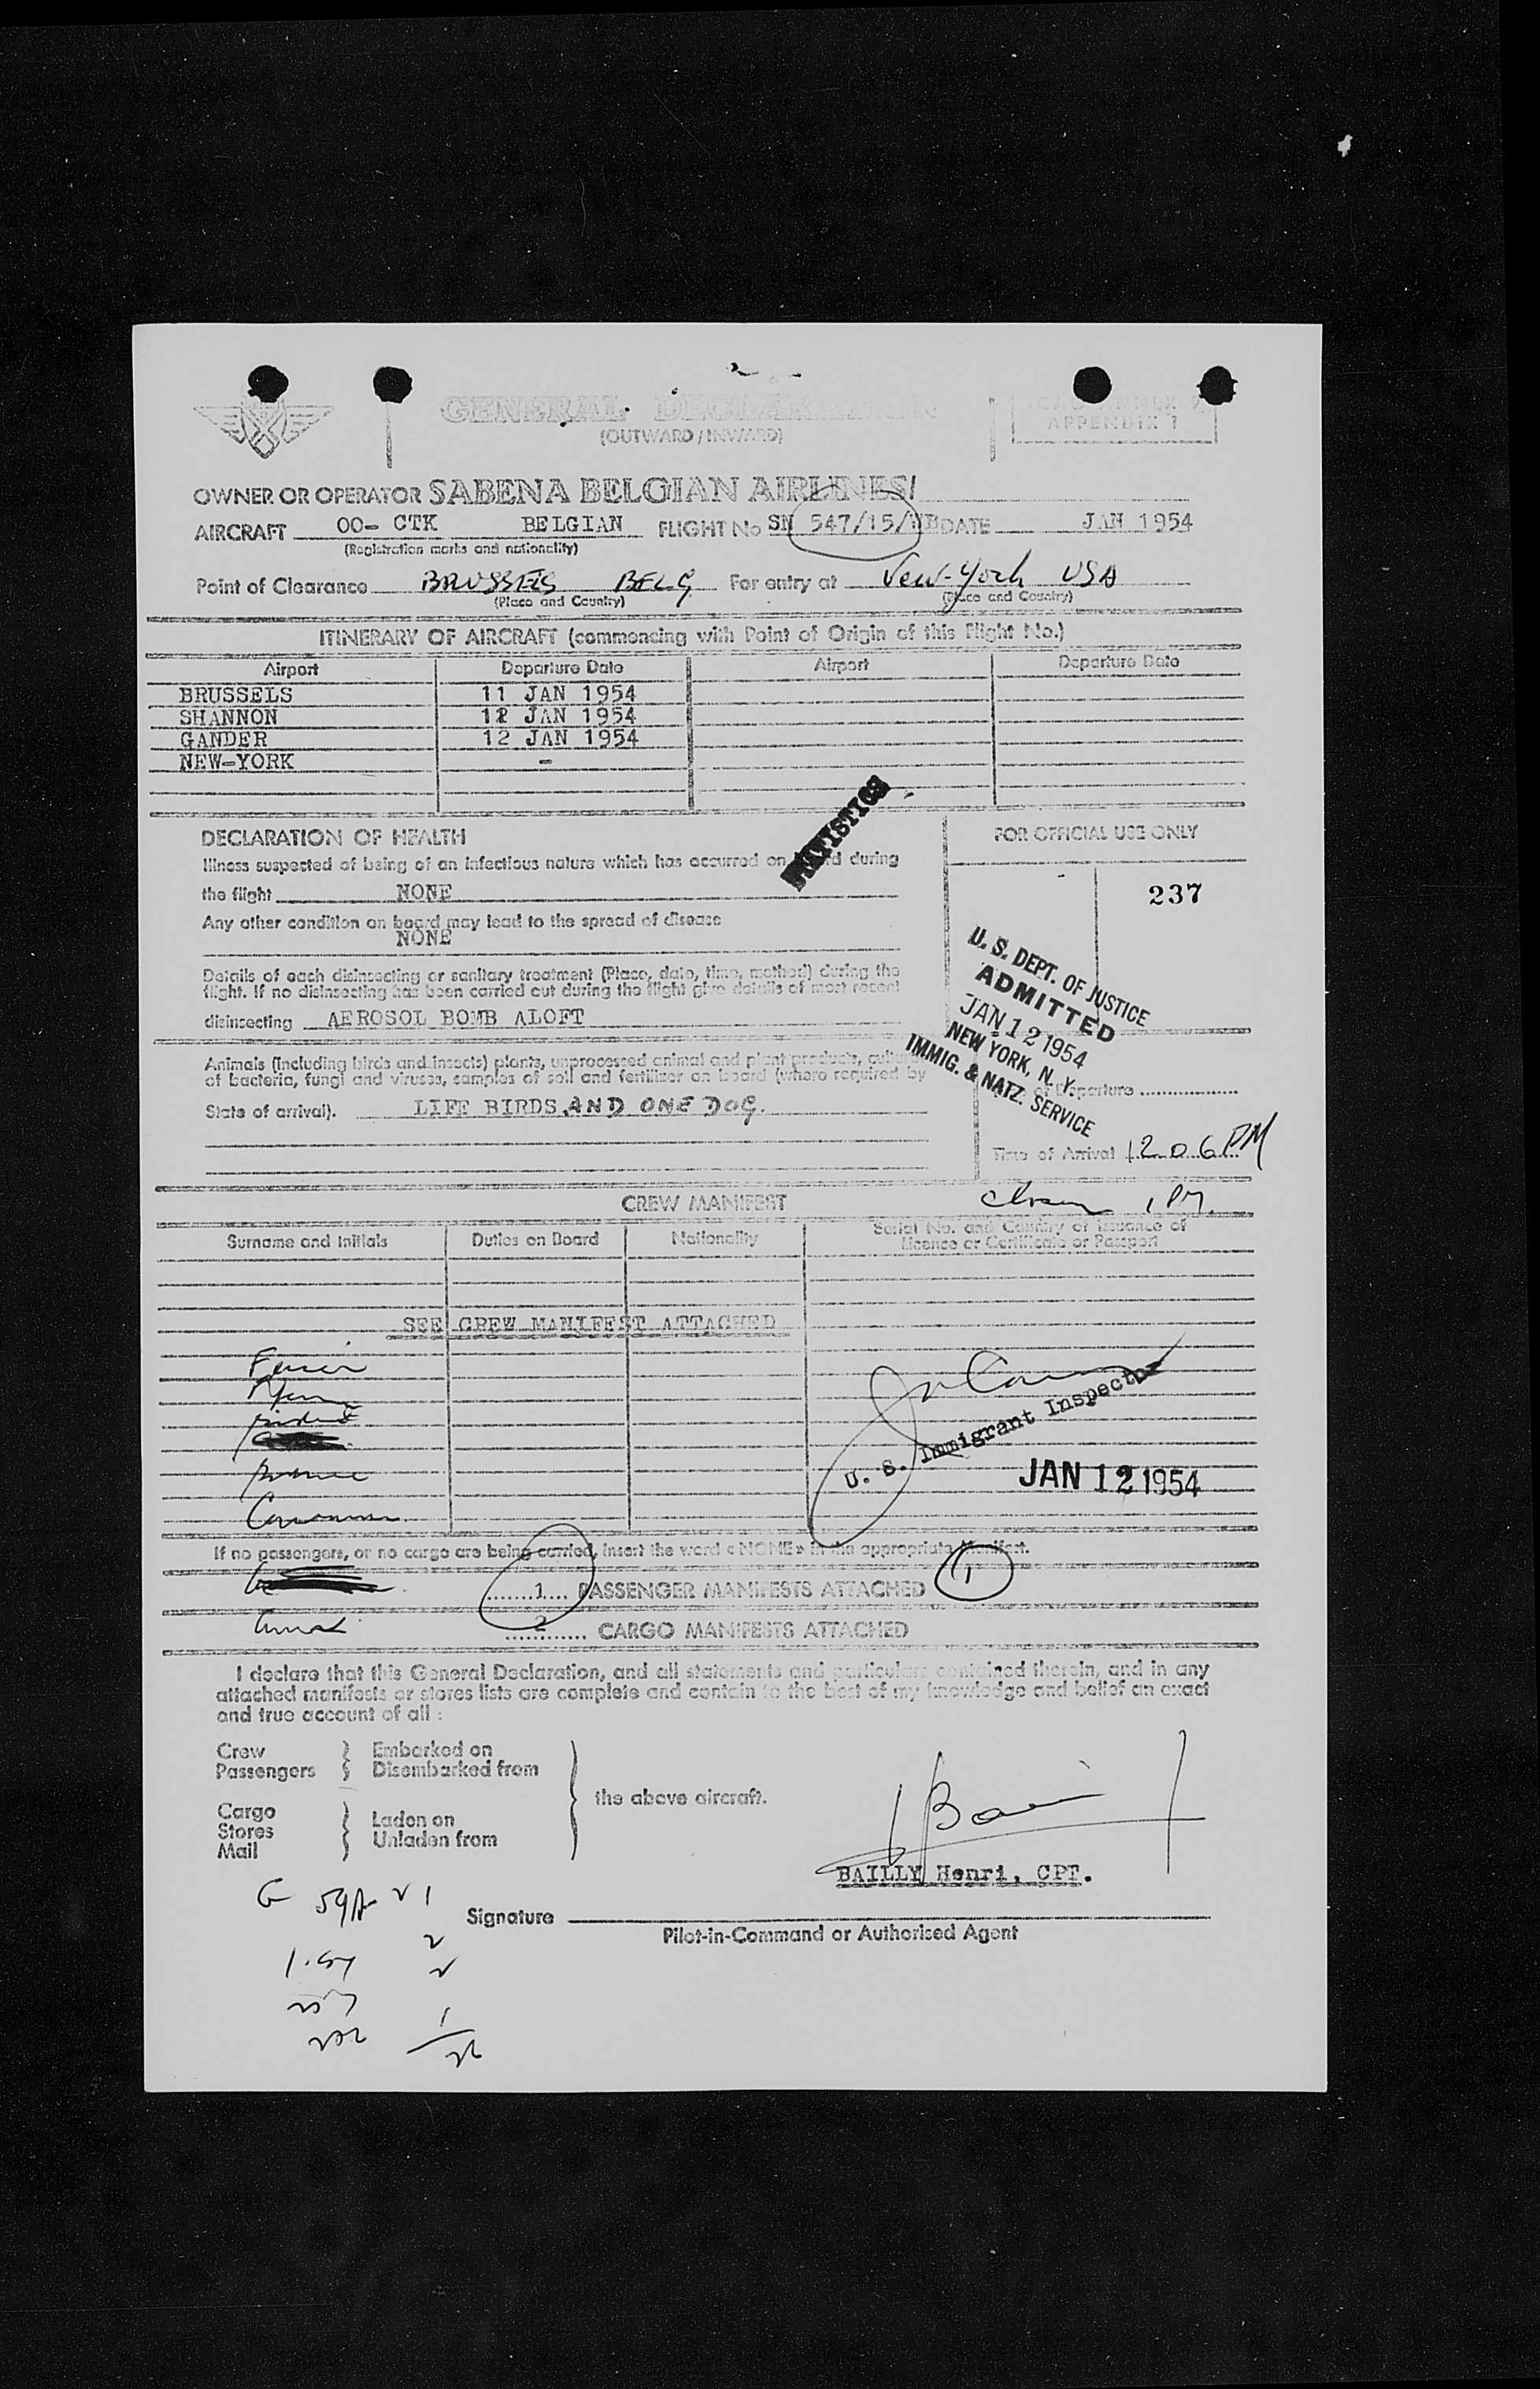 GENERAL DECLARATION
(OUTWARD / INWARD)
ICAO ANNEX 9
APPENDIX 1
OWNER OR OPERATOR SABENA BELGIAN AIRLINES
AIRCRAFT OO- CTK BELGIAN FLIGHT No SN 547/15/ DATE JAN 1954
(Registration marks and nationality)
Point of Clearance BRUSSELS BELG For entry at New-York USA
(Place and Country) (Place and Country)
ITINERARY OF AIRCRAFT (commencing with Point of Origin of this Flight No.)
Airport Departure Date Airport Departure Date
BRUSSELS 11 JAN 1954
SHANNON 12 JAN 1954
GANDER 12 JAN 1954
NEW-YORK -
STATISTICS
DECLARATION OF HEALTH
Illness suspected of being of an infectious nature which has occurred on board during
the flight NONE
Any other condition on board may lead to the spread of disease
NONE
Details of each disinsecting or sanitary treatment (Place, date, time, method) during the
flight. If no disinsecting has been carried out during the flight give details of most recent
disinsecting AEROSOL BOMB ALOFT
Animals (including birds and insects) plants, unprocessed animal and plant products, cultures
of bacteria, fungi and viruses, samples of soil and fertilizer on board (where required by
State of arrival). LIFE BIRDS AND ONE DOG.
FOR OFFICIAL USE ONLY
237
U. S. DEPT. OF JUSTICE
ADMITTED
JAN 12 1954
NEW YORK, N. Y.
IMMIG. & NATZ. SERVICE
of Departure
Time of Arrival 1206 PM
1 PM.
CREW MANIFEST
Surname and Initials Duties on Board Nationality Serial No. and Country of Issuance of
Licence or Certificate or Passport
SEE CREW MANIFEST ATTACHED
U. S. Immigrant Inspector
JAN 12 1954
If no passengers, or no cargo are being carried, insert the word «NONE» in the appropriate Manifest.
1 PASSENGER MANIFESTS ATTACHED 1
2 CARGO MANIFESTS ATTACHED
I declare that this General Declaration, and all statements and particulars contained therein, and in any
attached manifests or stores lists are complete and contain to the best of my knowledge and belief an exact
and true account of all :
Crew Embarked on
Passengers Disembarked from
the above aircraft.
Cargo
Stores Laden on
Mail Unladen from
BAILLY Henri, CPT.
Signature
Pilot-in-Command or Authorised Agent